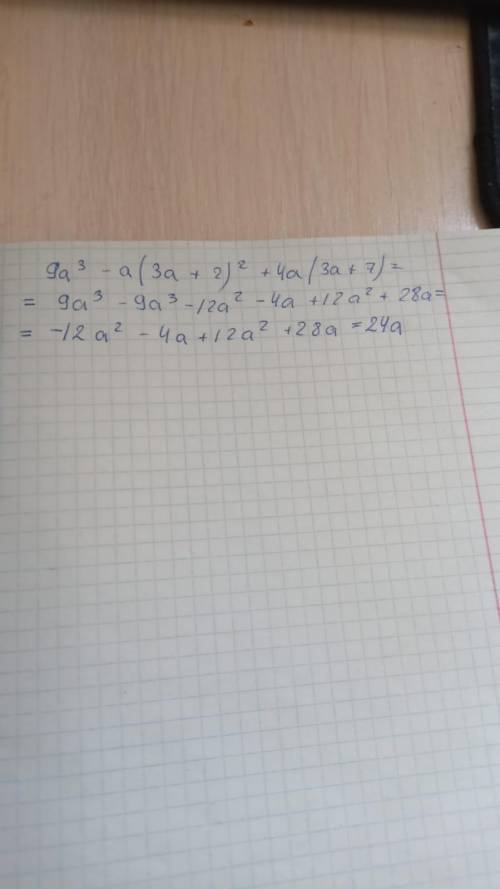 9a³ - a(3a + 2)² + 4a(3a + 7) =
= 9a³ - 9a³ - 12a² - 4a + 12a² + 28a =
= -12a² - 4a + 12a² + 28a = 24a